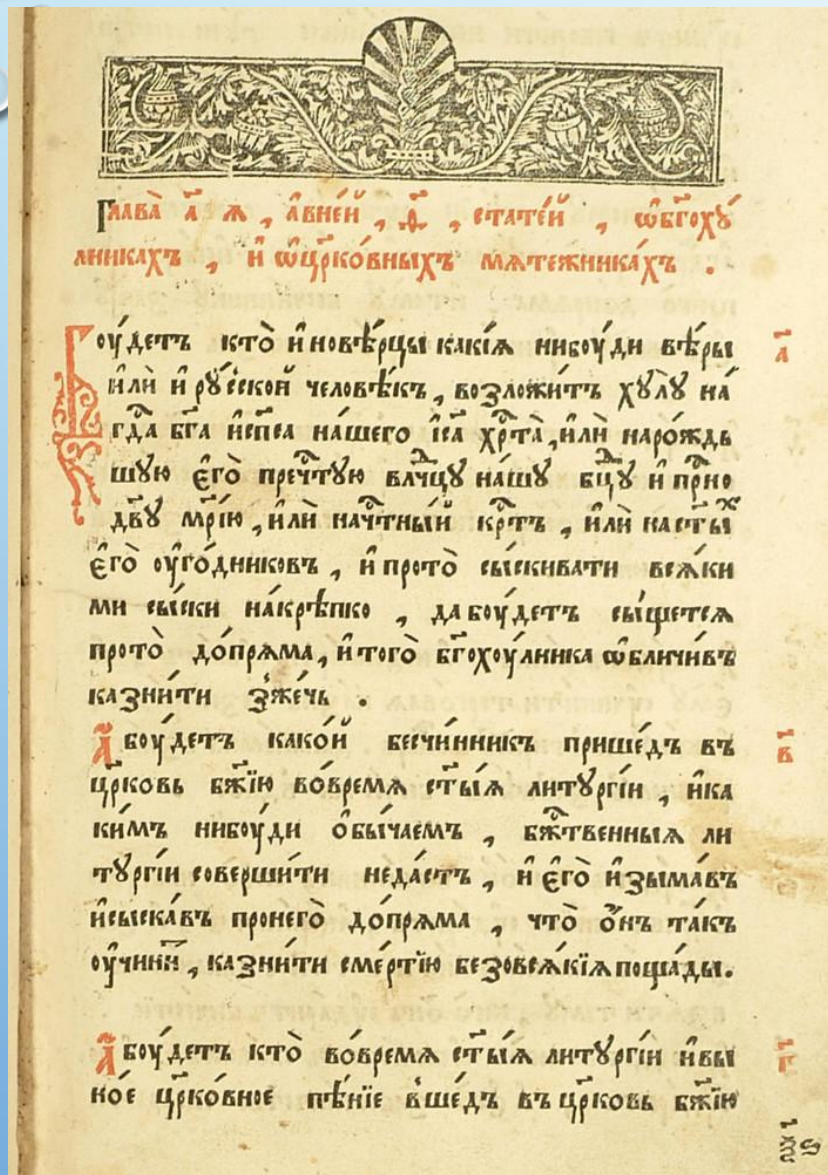 Глава̀ а҃ я , а́вне́й , ѳ҃ , стате́й , ѡ҆бг҃охꙋ́
лникахъ , и҆ ѡ҆цр҃ко́вныхъ мѧте́жника́хъ .
Боу́детъ кто̀ и҆новѣ́рцы каки́ѧ нибоу́ди вѣ́ры а҃
и҆лѝ и҆ рꙋ́сской человѣ́къ , возложи́тъ хꙋлꙋ̀ на́
гд҃а бг҃а и҆сп҃са на́шего і҆с҃а хр҃та̀ , и҆лѝ наро́ждь
шꙋю є҆го̀ преч҃тꙋю влч҃цꙋ на́шꙋ бц҃ꙋ и҆ пр҃но
дв҃ꙋ мр҃і́ю , и҆лѝ нач҃тны́й кр҃тъ , и҆лѝ наст҃ы́х
є҆го̀ оу҆го́дниковъ , и҆ прото̀ сы́скивати всѧ́ки
ми сы́ски на́крѣпко , да боу́детъ сы́щетсѧ
прото̀ до́прѧма , и҆ того̀ бг҃охоу́лника ѡ҆бличи́въ
казни́ти зже́чь .
А҆ боу́детъ како́й бесчи́нникъ прише́дъ въ в҃
цр҃ковь бж҃ію во́времѧ ст҃ы́ѧ литꙋргі́и , и҆ка
ки́мъ нибоу́ди ѻ҆бы́чаемъ , бж҃твенныѧ ли
тꙋргі́и соверши́ти неда́стъ , и҆ є҆го̀ и҆зыма́въ
и҆сыска́въ пронего̀ до́прѧма , что̀ ѻ҆́нъ та́къ
оу҆чини́т , казни́ти сме́ртїю безовсѧ́кїѧ поща́ды .
А҆ боу́детъ кто̀ во́времѧ ст҃ы́ѧ литꙋргі́и и҆вы г҃
но́е цр҃ко́вное пѣ́нїе вше́дъ въ цр҃ковь бж҃їю